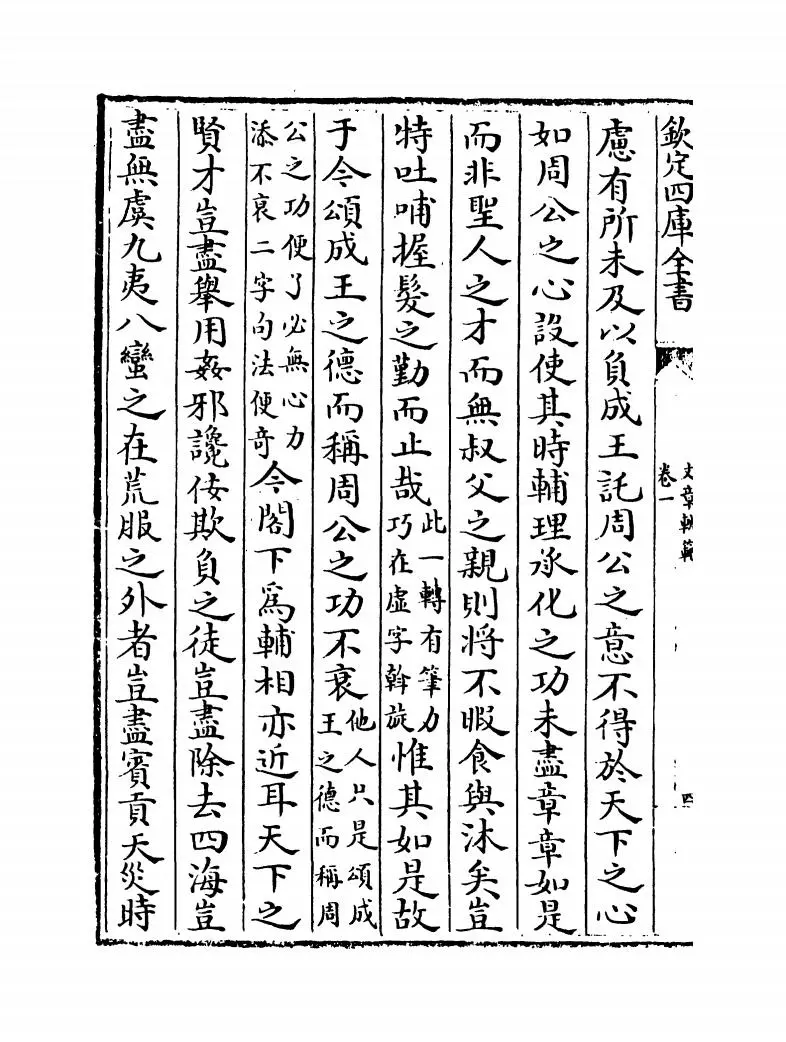 欽定四庫全書
文章軌範
卷一
四
慮有所未及以負成王託周公之意不得於天下之心
如周公之心設使其時輔理承化之功未盡章章如是
而非聖人之才而無叔父之親則將不暇食與沐矣豈
特吐哺握髮之勤而止哉此一轉有筆力巧在虛字斡旋惟其如是故
于今頌成王之德而稱周公之功不衰他人只是頌成王之德而稱周
公之功便了必無心力添不衰二字句法便奇今閣下為輔相亦近耳天下之
賢才豈盡舉用姦邪讒佞欺負之徒豈盡除去四海豈
盡無虞九夷八蠻之在荒服之外者豈盡賓貢天災時